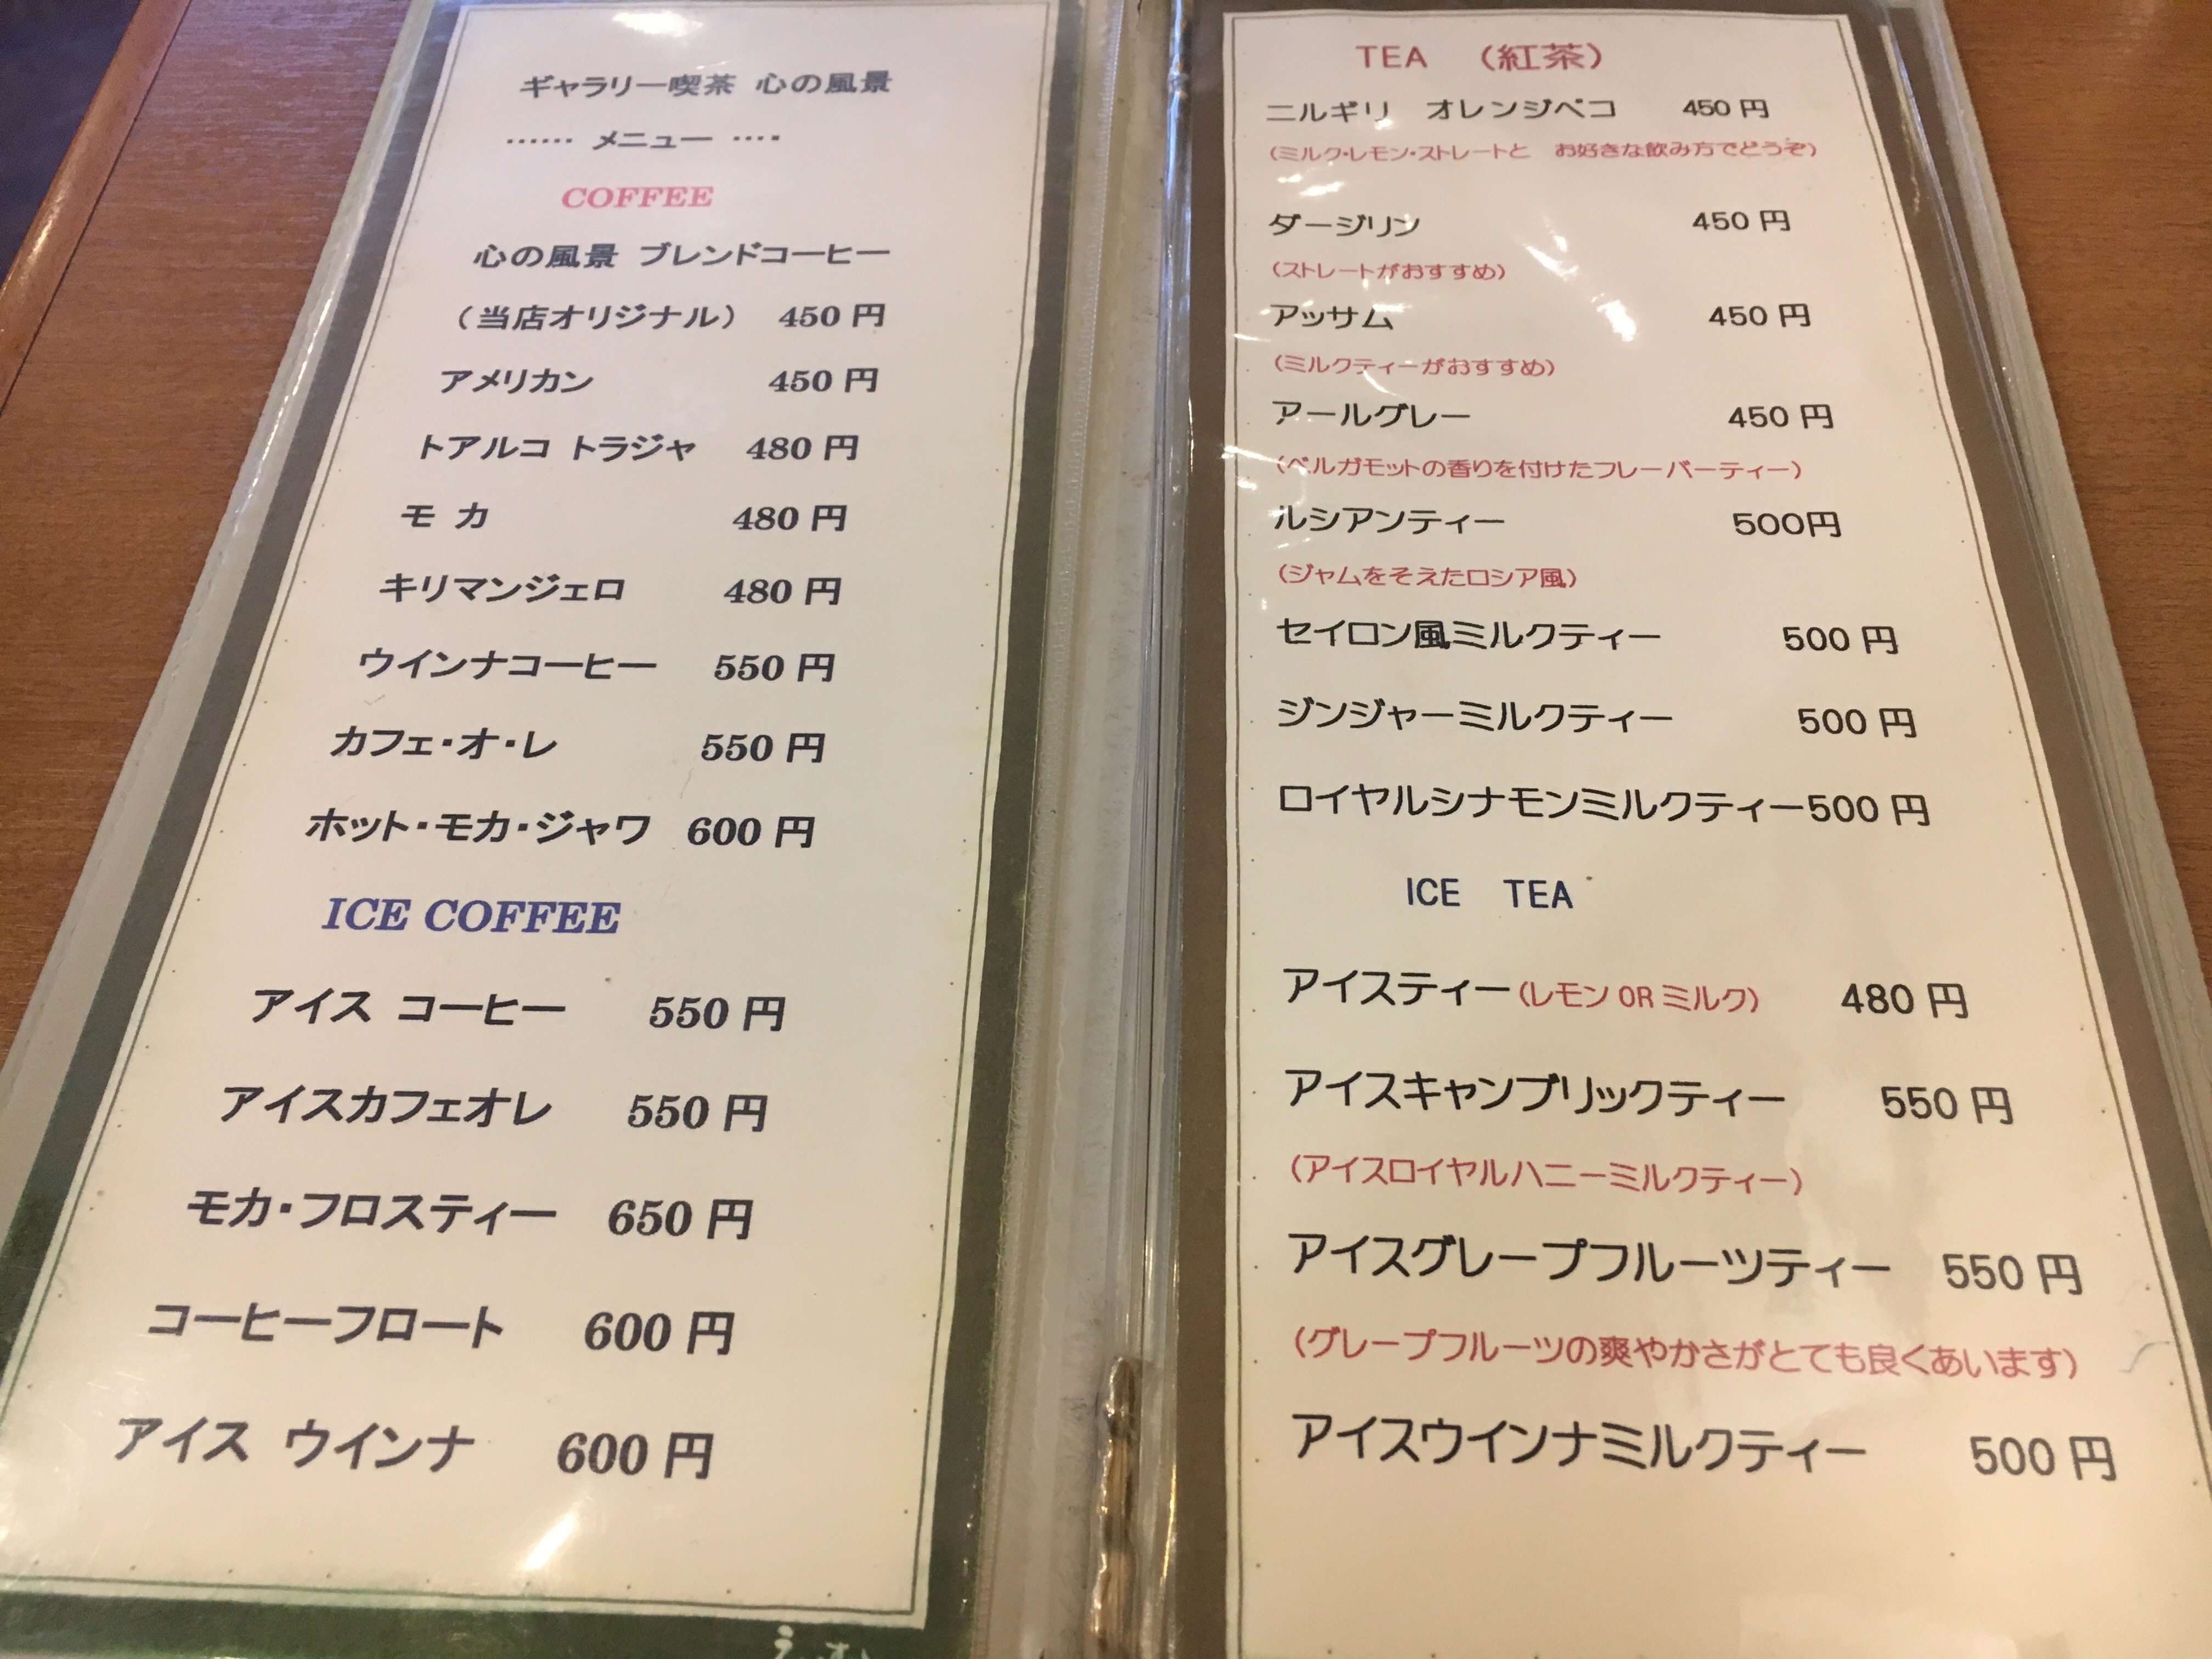 ギャラリー喫茶 心の風景
…… メニュー ‥‥
COFFEE
心の風景 ブレンドコーヒー
（当店オリジナル） 450 円
アメリカン 450 円
トアルコ トラジャ 480 円
モ カ 480 円
キリマンジェロ 480 円
ウインナコーヒー 550 円
カフェ・オ・レ 550 円
ホット・モカ・ジャワ 600 円
ICE COFFEE
アイス コーヒー 550 円
アイスカフェオレ 550 円
モカ・フロスティー 650 円
コーヒーフロート 600 円
アイス ウインナ 600 円
TEA （紅茶）
ニルギリ オレンジペコ 450 円
（ミルク・レモン・ストレートと お好きな飲み方でどうぞ）
ダージリン 450 円
（ストレートがおすすめ）
アッサム 450 円
（ミルクティーがおすすめ）
アールグレー 450 円
（ベルガモットの香りを付けたフレーバーティー）
ルシアンティー 500円
（ジャムをそえたロシア風）
セイロン風ミルクティー 500 円
ジンジャーミルクティー 500 円
ロイヤルシナモンミルクティー500 円
ICE TEA
アイスティー（レモン OR ミルク） 480 円
アイスキャンブリックティー 550 円
（アイスロイヤルハニーミルクティー）
アイスグレープフルーツティー 550 円
（グレープフルーツの爽やかさがとても良くあいます）
アイスウインナミルクティー 500 円